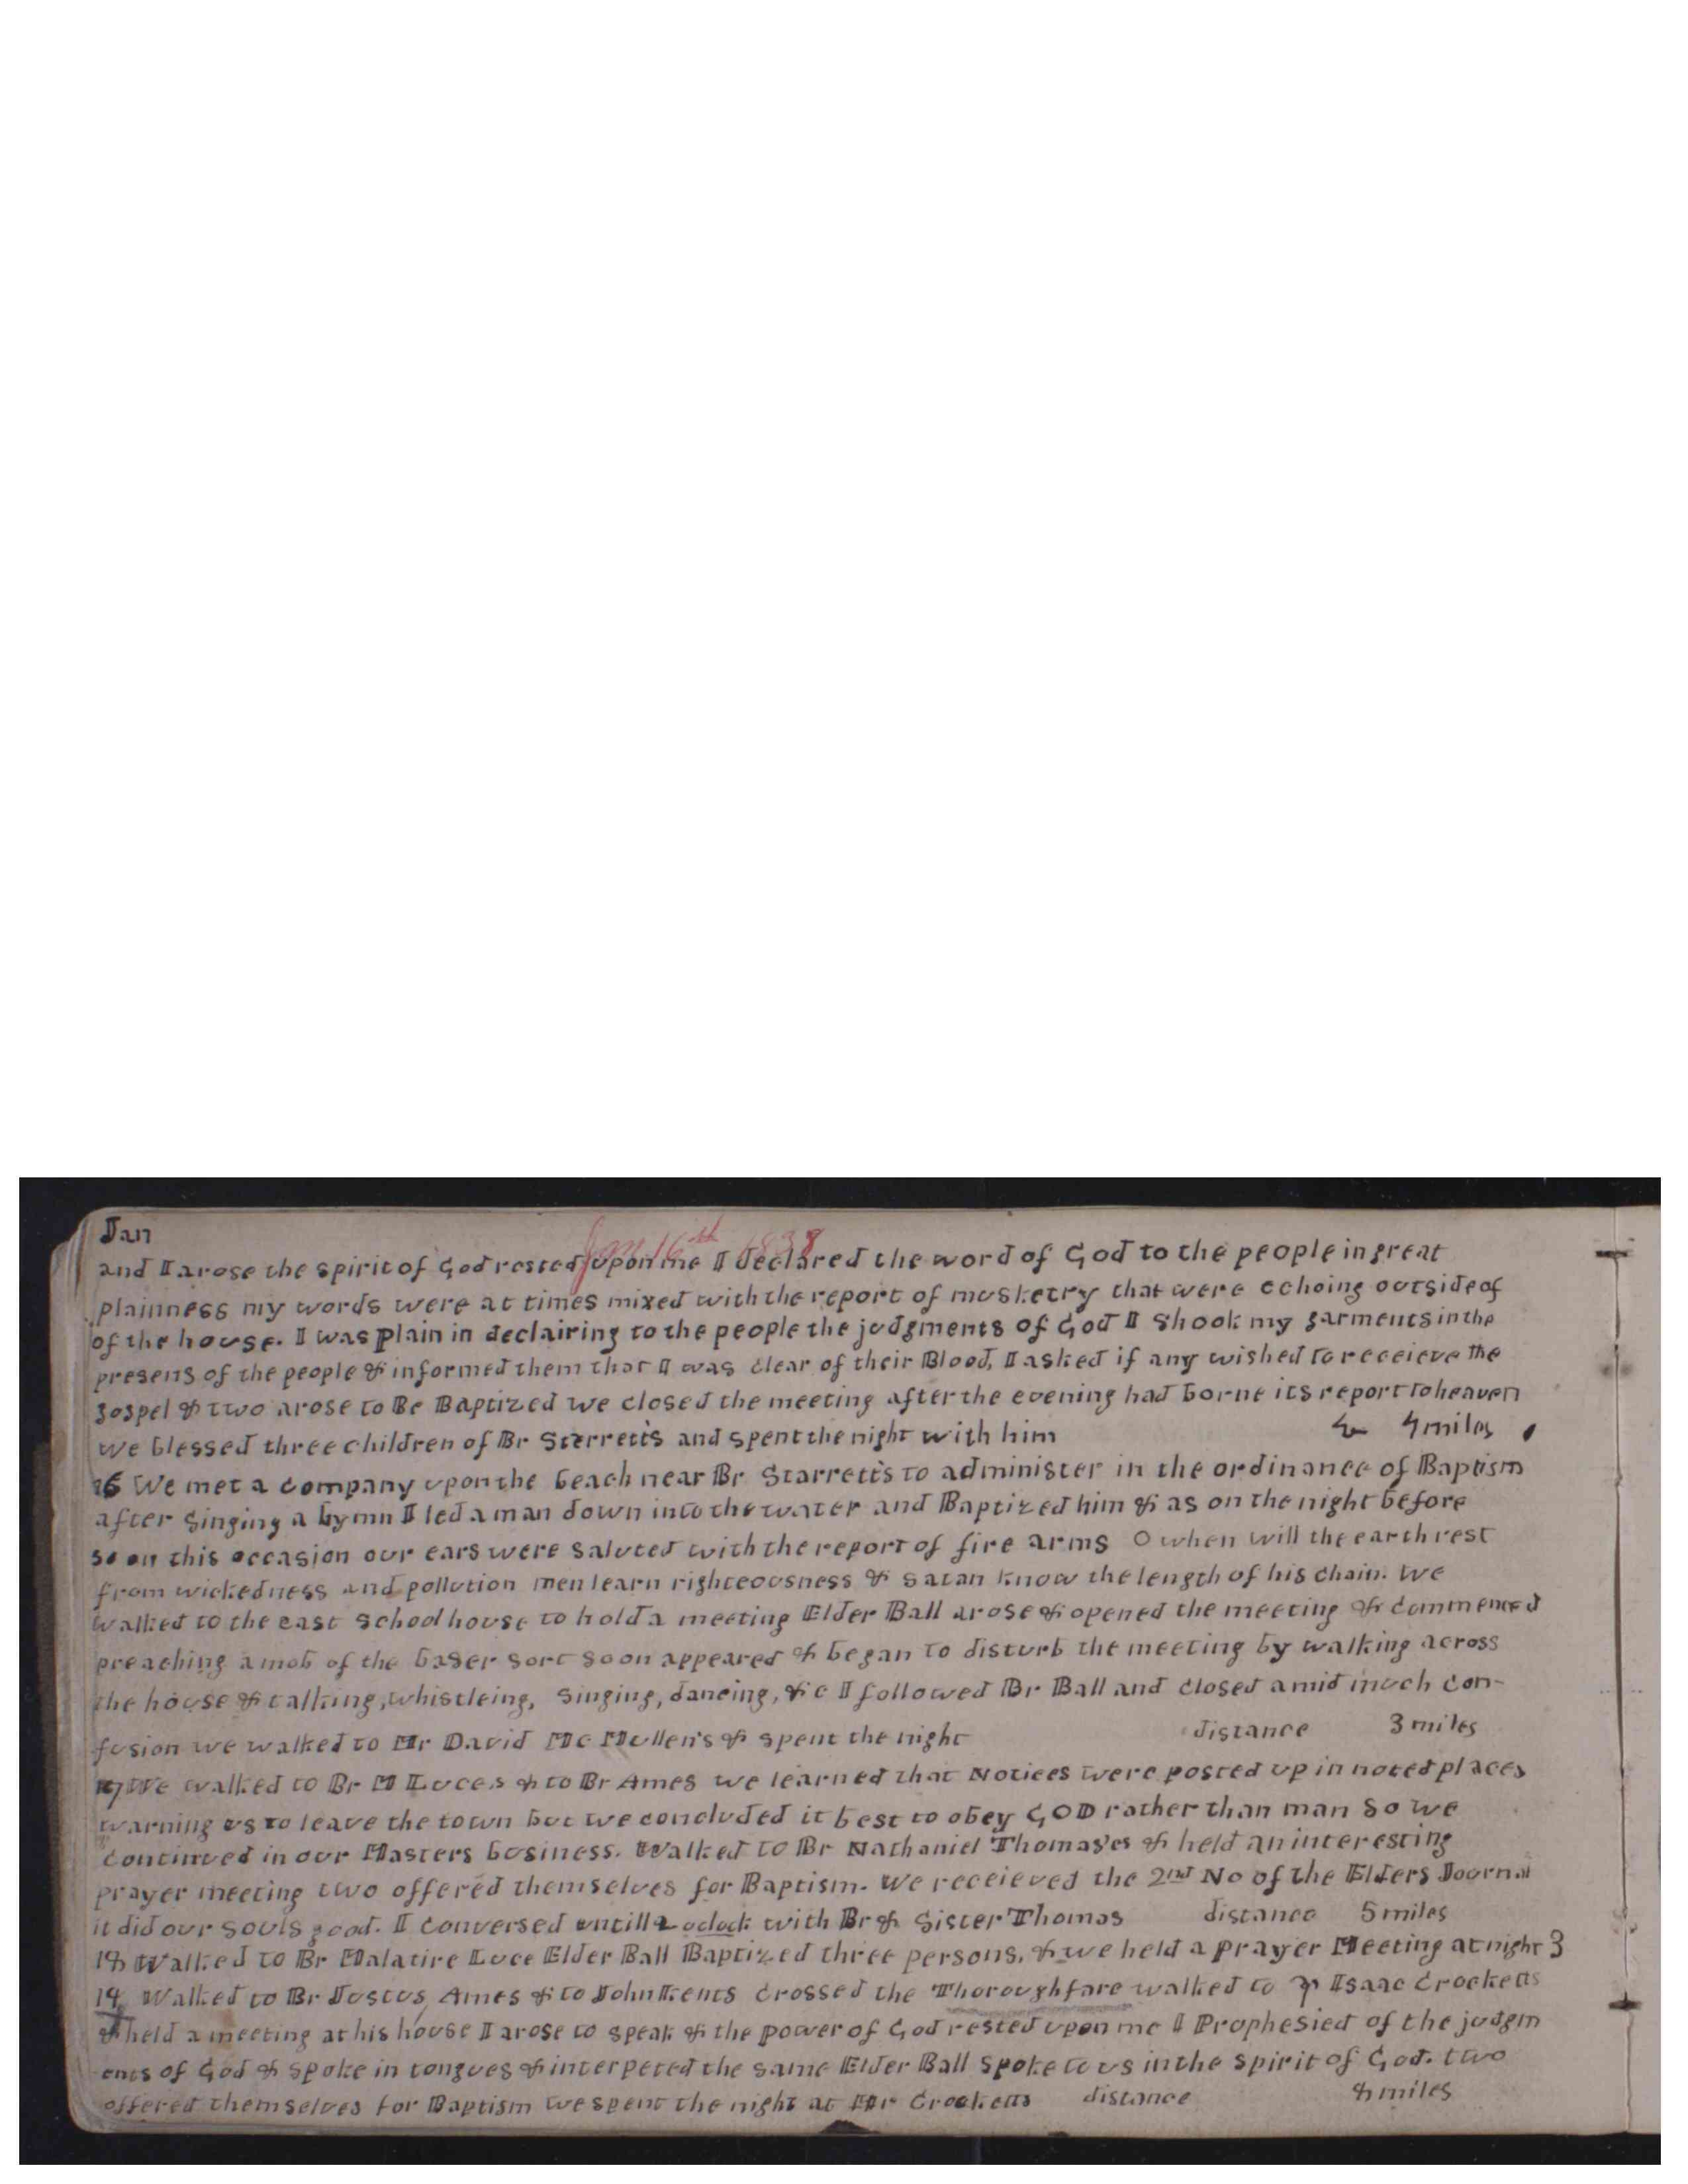 Jan
Jan 16th 1838
and I arose the spirit of God rested upon me I declared the word of God to the people in great
plainness my words were at times mixed with the report of musketry that were echoing outside of
of the house. I was plain in declairing to the people the judgments of God I shook my garments in the
presens of the people & informed them that I was clear of their Blood, I asked if any wished to receieve the
gospel & two arose to Be Baptized we closed the meeting after the evening had borne its report to heaven
we blessed three children of Br Sterretts and spent the night with him 4 miles
16 We met a company upon the beach near Br Starretts to administer in the ordinance of Baptism
after singing a hymn I led a man down into the water and Baptized him & as on the night before
so on this occasion our ears were saluted with the report of fire arms O when will the earth rest
from wickedness and pollution men learn righteousness & satan know the length of his chain. We
walked to the east school house to hold a meeting Elder Ball arose & opened the meeting & commenced
preaching a mob of the baser sort soon appeared & began to disturb the meeting by walking across
the house & talking, whistleing, singing, dancing, &c I followed Br Ball and closed amid much con-
fusion we walked to Mr David Mc Mullen's & spent the night distance 3 miles
17 We walked to Br M Luce,s & to Br Ames we learned that Notices were posted up in noted places
warning us to leave the town but we concluded it best to obey GOD rather than man so we
continued in our Masters business. Walked to Br Nathaniel Thomas'es & held an interesting
prayer meeting two offered themselves for Baptism. We receieved the 2nd No of the Elders Journal
it did our souls good. I conversed untill 2 oclock with Br & Sister Thomas distance 5 miles
18 Walked to Br Malatire Luce Elder Ball Baptized three persons, & we held a prayer Meeting at night 3
19 Walked to Br Justus Ames & to John Kents crossed the Thoroughfare walked to Isaac Crocketts
& held a meeting at his house I arose to speak & the power of God rested upon me I Prophesied of the judgm
ents of God & spoke in tongues & interpeted the same Elder Ball spoke to us in the spirit of God. two
offered themselves for Baptism we spent the night at Mr Crocketts distance 8 miles